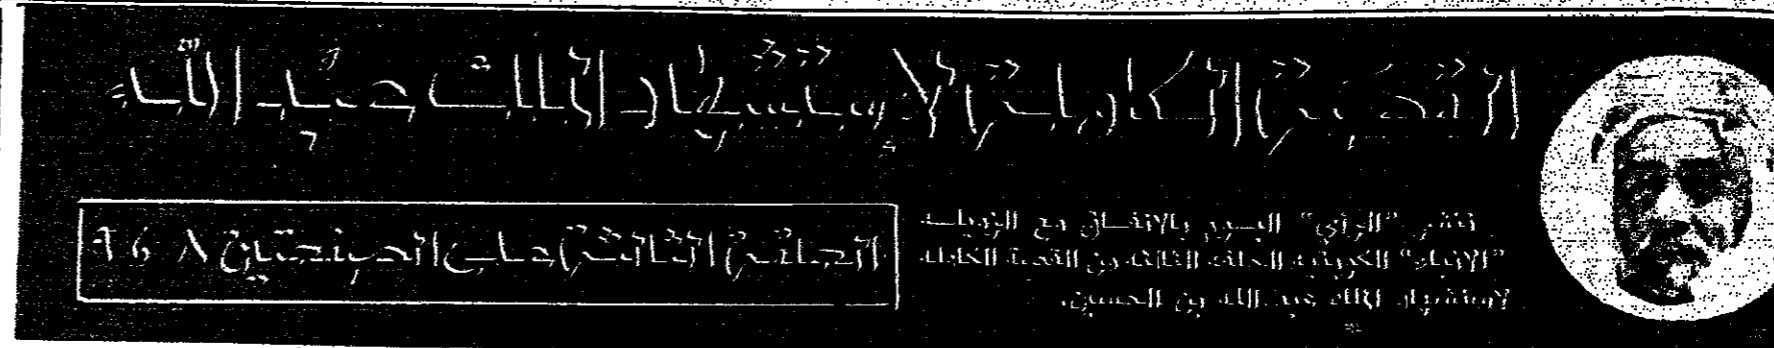 القصة الكاملة لاستشهاد الملك عبد الله
تنشر "الرأي" اليوم بالاتفاق مع الزميلة
"الأنباء" الكويتية الحلقة الثالثة من القصة الكاملة
لاستشهاد الملك عبد الله بن الحسين.
الحلقة الثالثة على الصفحتين ٨ و ٩